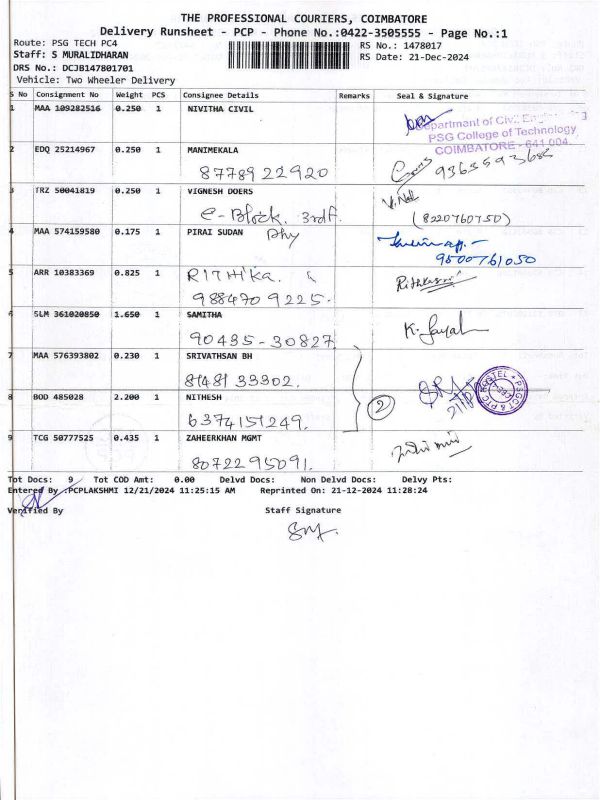 THE PROFESSIONAL COURIERS, COIMBATORE
Delivery Runsheet - PCP - Phone No.:0422-3505555 - Page No.:1
Route: PSG TECH PC4
RS No.: 1478017
Staff: S MURALIDHARAN
RS Date: 21-Dec-2024
DRS No.: DCJB147801701
Vehicle: Two Wheeler Delivery
S No Consignment No Weight PCS Consignee Details Remarks Seal & Signature
1 MAA 109282516 0.250 1 NIVITHA CIVIL
Department of Civil Engineering
PSG College of Technology
COIMBATORE - 641 004.
2 EDQ 25214967 0.250 1 MANIMEKALA
8778922920
9363593685
3 TRZ 50041819 0.250 1 VIGNESH DOERS
e-Block. 3rdf.
(8220760750)
4 MAA 574159580 0.175 1 PIRAI SUDAN
Phy
9500761050
5 ARR 10383369 0.825 1 RITHika.
988470 9225.
6 SLM 361020850 1.650 1 SAMITHA
90435-30827
7 MAA 576393802 0.230 1 SRIVATHSAN BH
81481 33302.
8 BOD 485028 2.200 1 NITHESH
6374151249.
2
9 TCG 50777525 0.435 1 ZAHEERKHAN MGMT
8072295091.
Tot Docs: 9 Tot COD Amt: 0.00 Delvd Docs: Non Delvd Docs: Delvy Pts:
Entered By :PCPLAKSHMI 12/21/2024 11:25:15 AM Reprinted On: 21-12-2024 11:28:24
Verified By Staff Signature